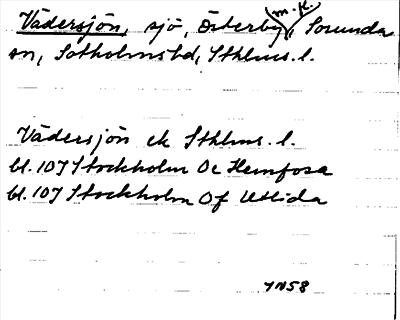 Vädersjön, sjö, Österby (m.fl.), Sorunda
sn, Sotholmshd, Sthlms. l.
Vädersjön ek Sthlms. l.
bl. 107 Stockholm Oc Hemfosa
bl. 107 Stockholm Of Utlida
JN58